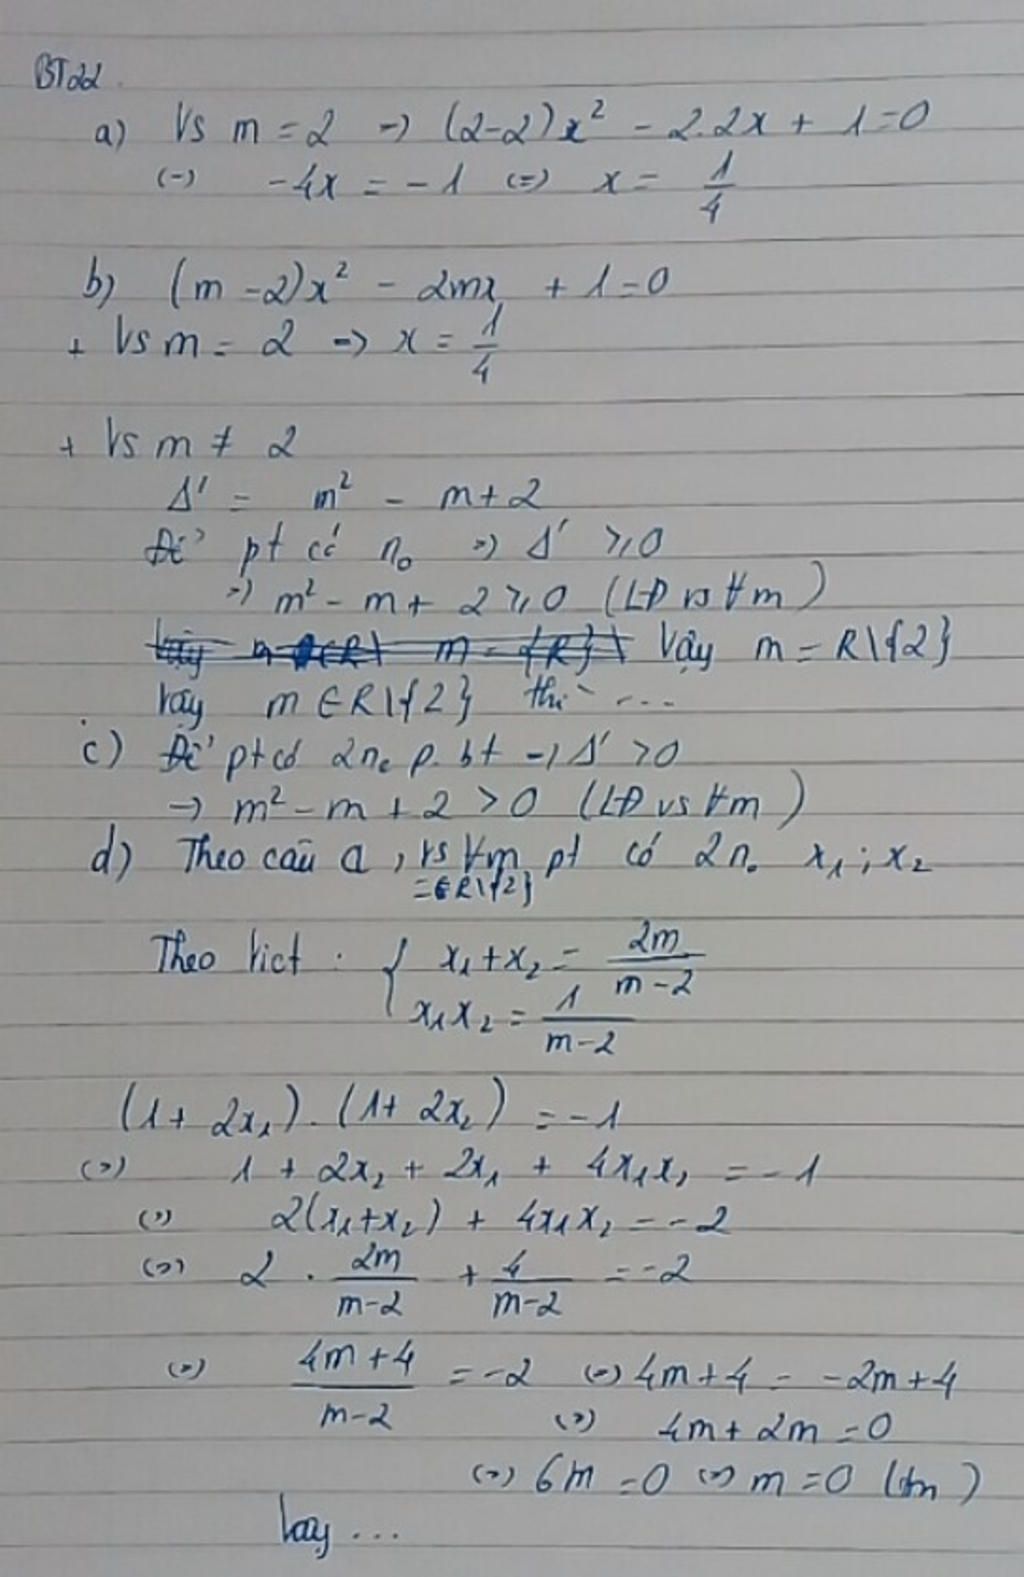 BT22.
a) Vs m = 2 => (2-2)x² - 2.2x + 1 = 0
(=) -4x = -1 (=) x = 1/4
b) (m-2)x² - 2mx + 1 = 0
+ Vs m = 2 => x = 1/4
+ Vs m ≠ 2
Δ' = m² - m + 2
Để pt có n₀ => Δ' ≥ 0
=> m² - m + 2 ≥ 0 (LĐ vs ∀m)
Vậy m = R\{2}
Vậy m ∈ R\{2} thì ...
c) Để pt có 2n₀ p.bt → Δ' > 0
→ m² - m + 2 > 0 (LĐ vs ∀m)
d) Theo câu a, vs ∀m pt có 2n₀ x₁; x₂
=∈R\{2}
Theo Viet: { x₁ + x₂ = 2m/(m-2)
x₁x₂ = 1/(m-2)
(1 + 2x₁).(1 + 2x₂) = -1
(=) 1 + 2x₂ + 2x₁ + 4x₁x₂ = -1
(=) 2(x₁+x₂) + 4x₁x₂ = -2
(=) 2 . 2m/(m-2) + 4/(m-2) = -2
(=) (4m+4)/(m-2) = -2 (=) 4m+4 = -2m+4
(=) 4m + 2m = 0
(=) 6m = 0 (=) m = 0 (tm)
Vậy ...